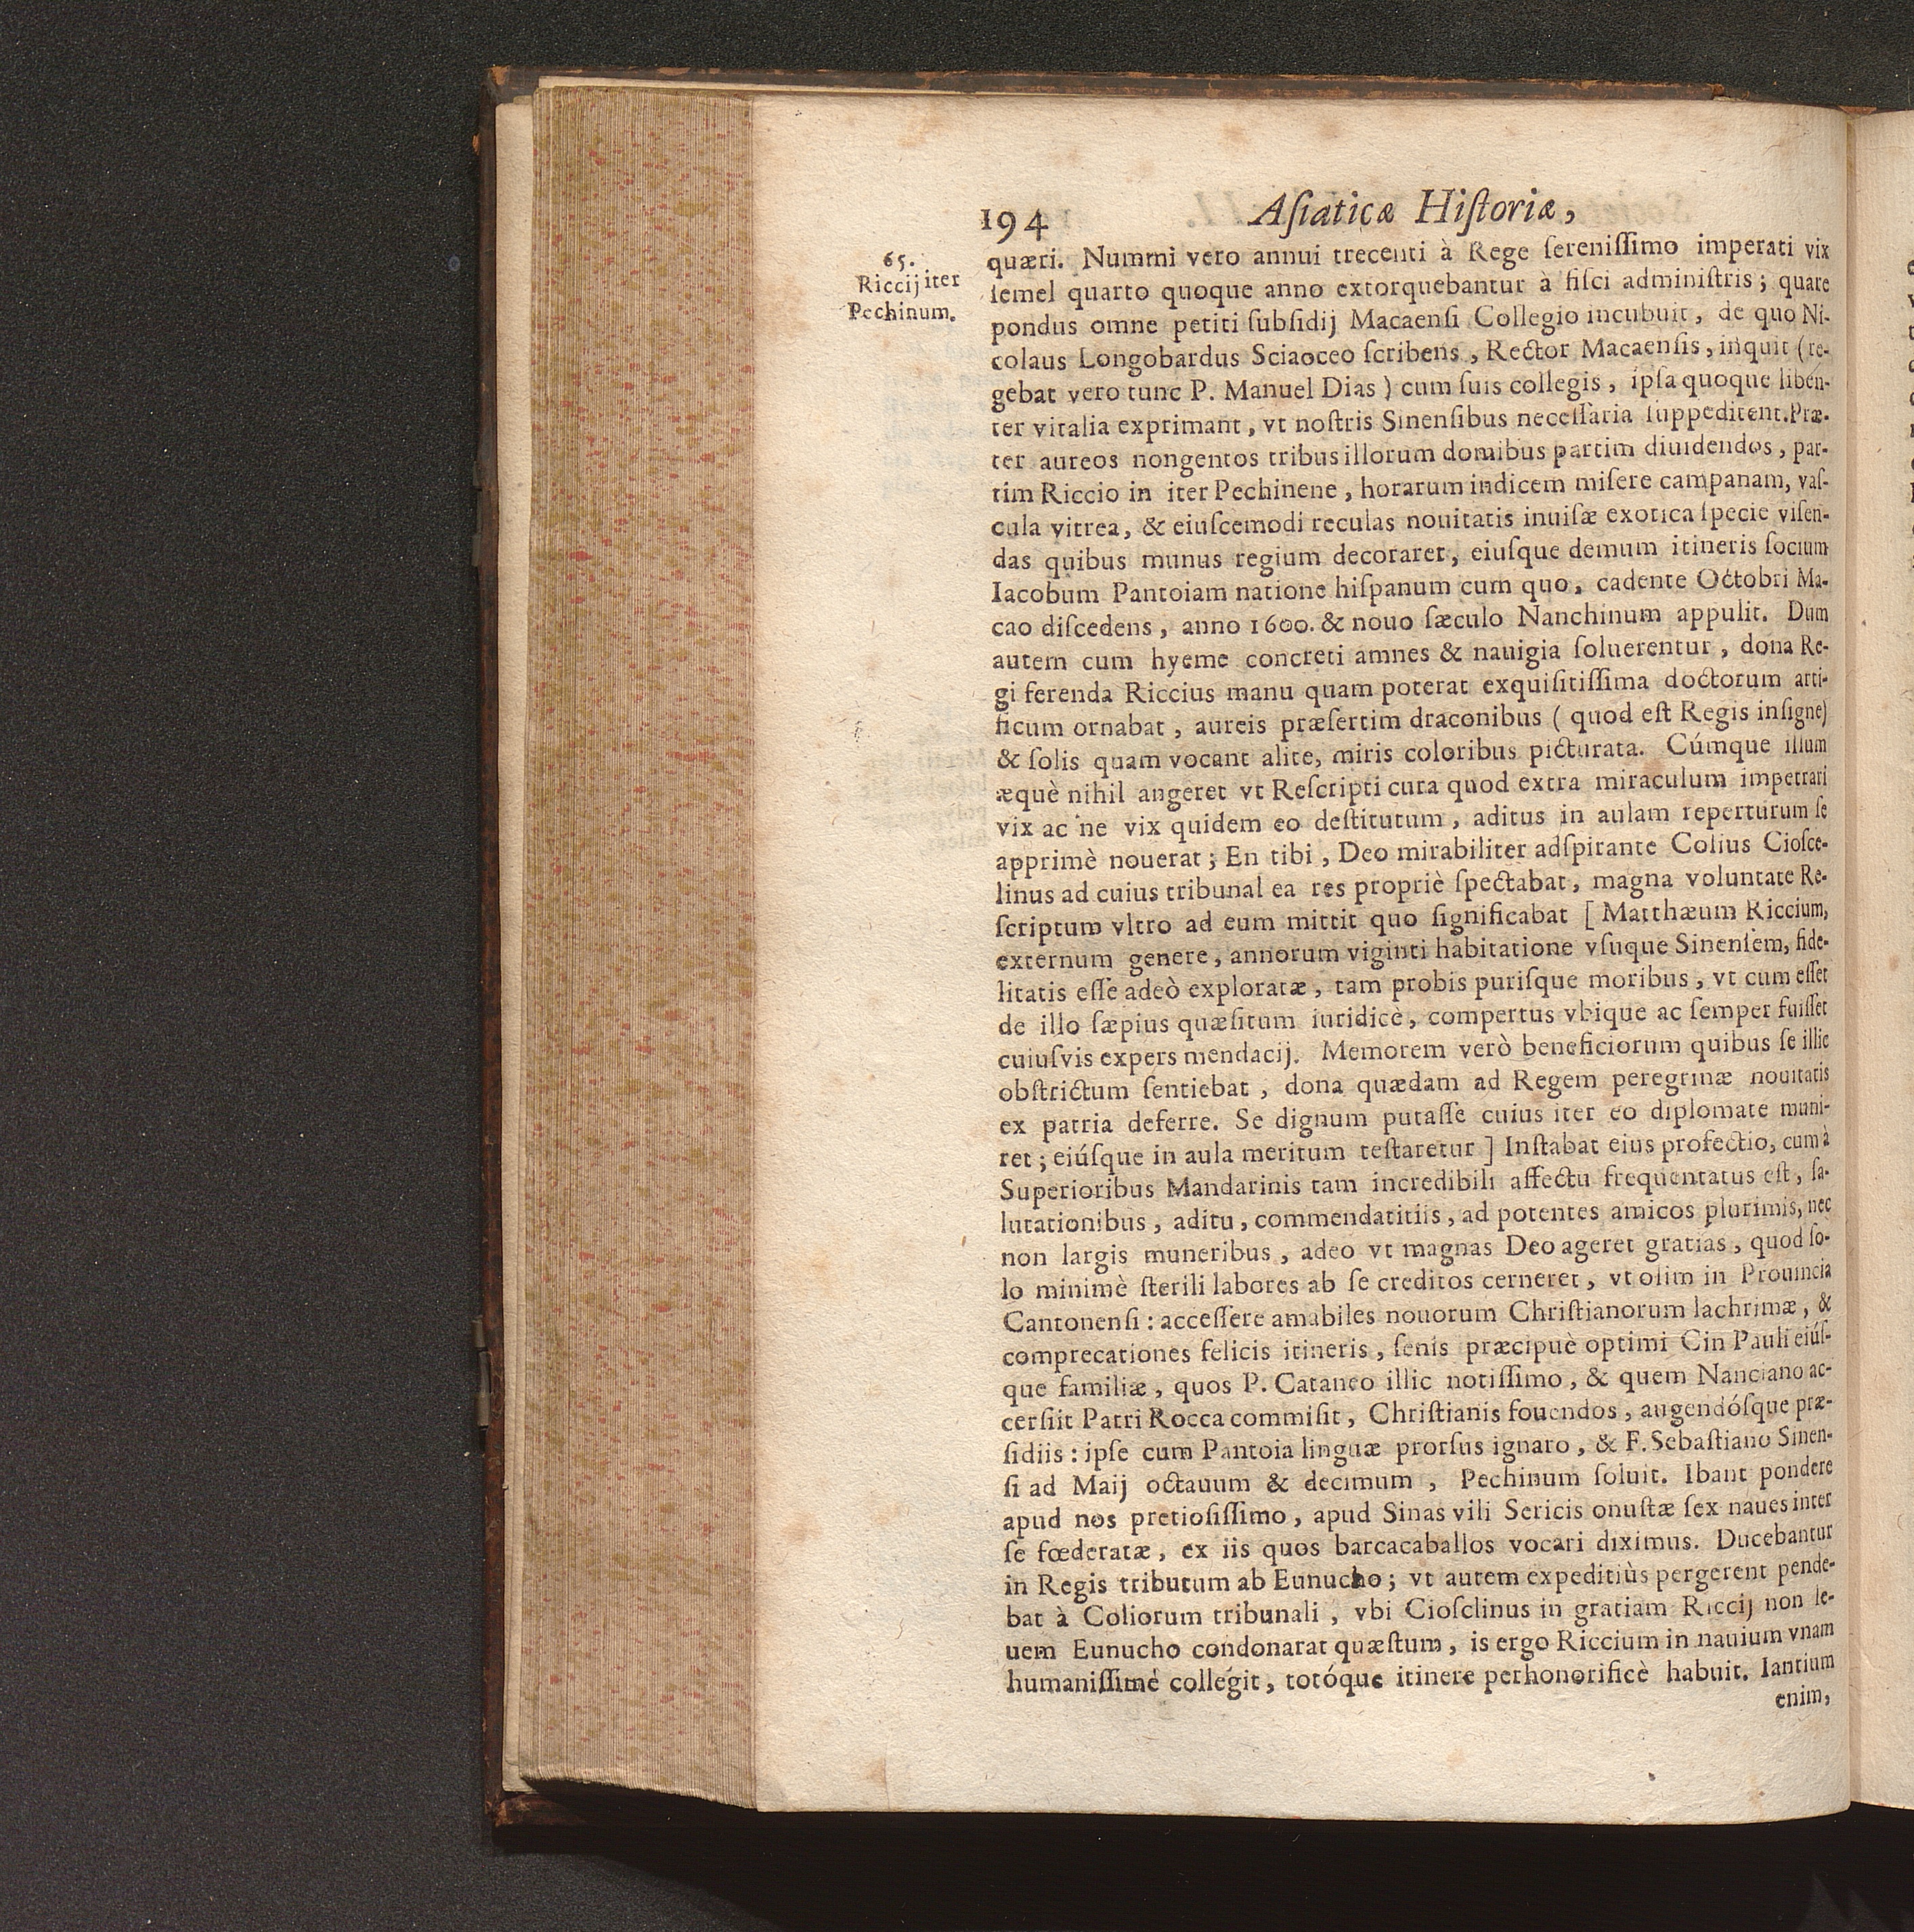 194 Aſiaticæ Hiſtoriæ,
65.
Riccij iter
Pechinum.
quæri. Nummi vero annui trecenti à Rege ſereniſſimo imperati vix
ſemel quarto quoque anno extorquebantur à fiſci adminiſtris; quare
pondus omne petiti ſubſidij Macaenſi Collegio incubuit, de quo Ni-
colaus Longobardus Sciaoceo ſcribens, Rector Macaenſis, inquit (re-
gebat vero tunc P. Manuel Dias) cum ſuis collegis, ipſa quoque liben-
ter vitalia exprimant, vt noſtris Sinenſibus neceſſaria ſuppeditent. Præ-
ter aureos nongentos tribus illorum domibus partim diuidendos, par-
tim Riccio in iter Pechinene, horarum indicem miſere campanam, vaſ-
cula vitrea, & eiuſcemodi reculas nouitatis inuiſæ exotica ſpecie viſen-
das quibus munus regium decoraret, eiuſque demum itineris ſocium
Iacobum Pantoiam natione hiſpanum cum quo, cadente Octobri Ma-
cao diſcedens, anno 1600. & nouo ſæculo Nanchinum appulit. Dum
autem cum hyeme concreti amnes & nauigia ſoluerentur, dona Re-
gi ferenda Riccius manu quam poterat exquiſitiſſima doctorum arti-
ficum ornabat, aureis præſertim draconibus (quod eſt Regis inſigne)
& ſolis quam vocant alite, miris coloribus picturata. Cúmque illum
æquè nihil angeret vt Reſcripti cura quod extra miraculum impetrari
vix ac ne vix quidem eo deſtitutum, aditus in aulam reperturum ſe
apprimè nouerat; En tibi, Deo mirabiliter adſpirante Colius Cioſce-
linus ad cuius tribunal ea res propriè ſpectabat, magna voluntate Re-
ſcriptum vltro ad eum mittit quo ſignificabat [Matthæum Riccium,
externum genere, annorum viginti habitatione vſuque Sinenſem, fide-
litatis eſſe adeò exploratæ, tam probis puriſque moribus, vt cum eſſet
de illo ſæpius quæſitum iuridicè, compertus vbique ac ſemper fuiſſet
cuiuſvis expers mendacij. Memorem verò beneficiorum quibus ſe illic
obſtrictum ſentiebat, dona quædam ad Regem peregrinæ nouitatis
ex patria deferre. Se dignum putaſſe cuius iter eo diplomate muni-
ret; eiúſque in aula meritum teſtaretur] Inſtabat eius profectio, cum à
Superioribus Mandarinis tam incredibili affectu frequentatus eſt, ſa-
lutationibus, aditu, commendatitiis, ad potentes amicos plurimis, nec
non largis muneribus, adeo vt magnas Deo ageret gratias, quod ſo-
lo minimè ſterili labores ab ſe creditos cerneret, vt olim in Prouincia
Cantonenſi: acceſſere amabiles nouorum Chriſtianorum lachrimæ, &
comprecationes felicis itineris, ſenis præcipuè optimi Cin Pauli eiúſ-
que familiæ, quos P. Cataneo illic notiſſimo, & quem Nanciano ac-
cerſiit Patri Rocca commiſit, Chriſtianis fouendos, augendóſque præ-
ſidiis: ipſe cum Pantoia linguæ prorſus ignaro, & F. Sebaſtiano Sinen-
ſi ad Maij octauum & decimum, Pechinum ſoluit. Ibant pondere
apud nos pretioſiſſimo, apud Sinas vili Sericis onuſtæ ſex naues inter
ſe fœderatæ, ex iis quos barcacaballos vocari diximus. Ducebantur
in Regis tributum ab Eunucho; vt autem expeditiùs pergerent pende-
bat à Coliorum tribunali, vbi Cioſclinus in gratiam Riccij non le-
uem Eunucho condonarat quæſtum, is ergo Riccium in nauium vnam
humaniſſimè collegit, totóque itinere perhonorificè habuit. Iantium
enim,